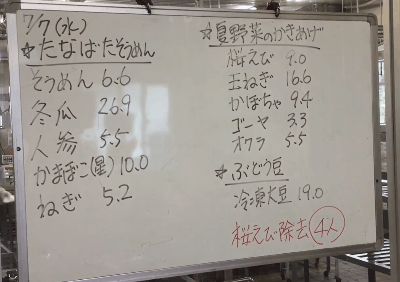 7/7(水)
☆たなばたそうめん
そうめん 6.6
冬瓜 26.9
人参 5.5
かまぼこ(星) 10.0
ねぎ 5.2
☆夏野菜のかきあげ
桜えび 9.0
玉ねぎ 16.6
かぼちゃ 9.4
ゴーヤ 3.3
オクラ 5.5
☆ぶどう豆
冷凍大豆 19.0
桜えび除去 4人